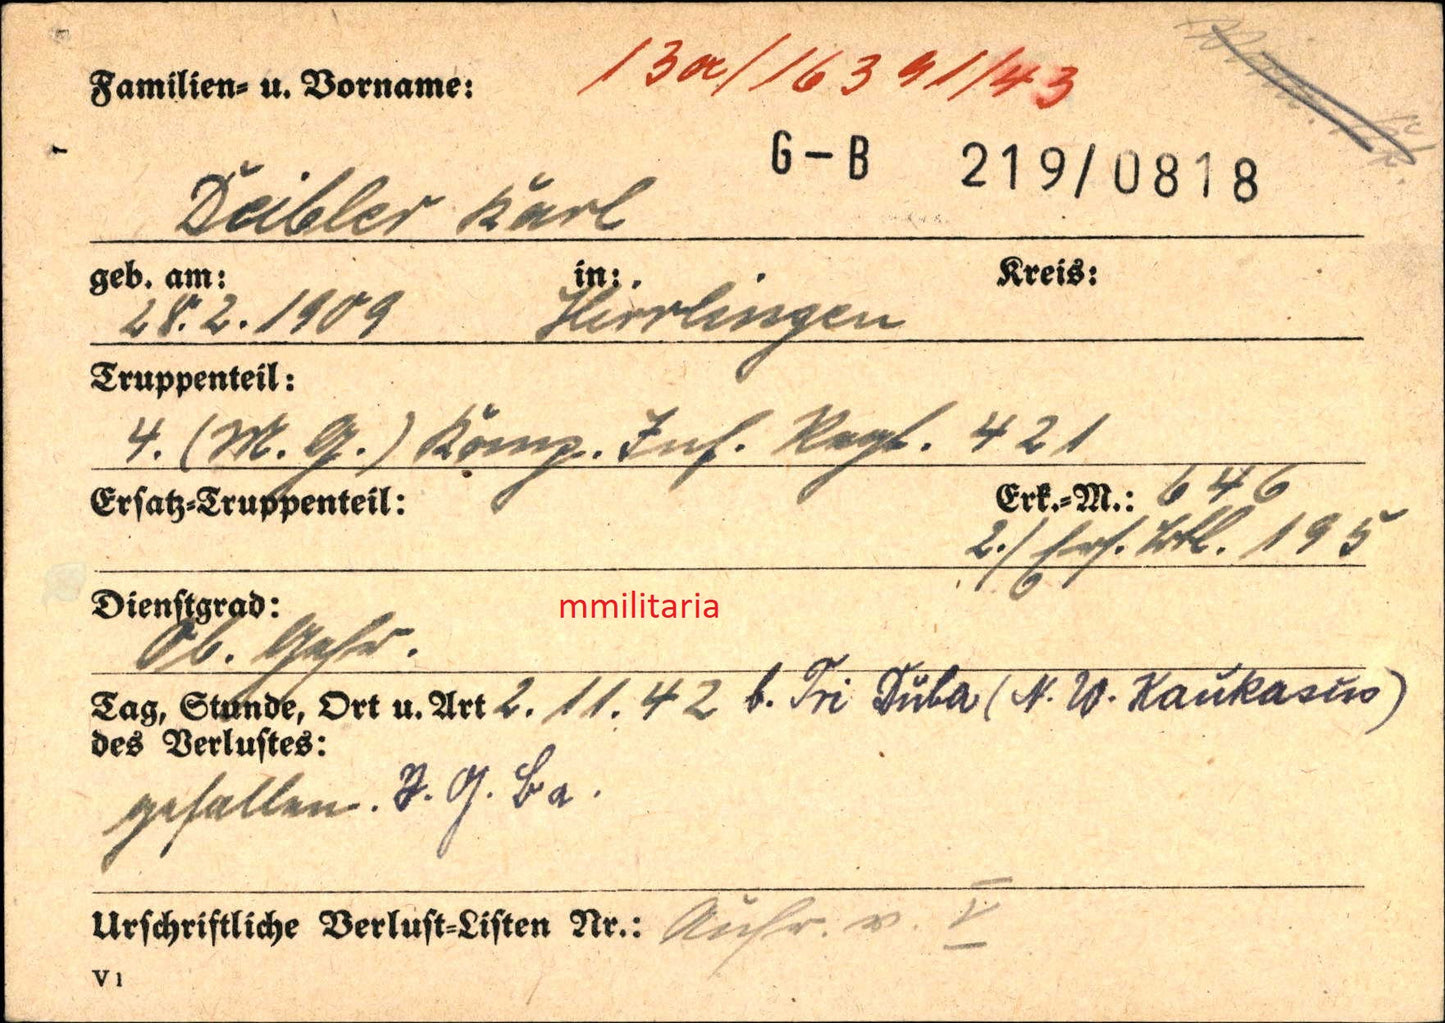 13a/16391/43
Familien- u. Vorname:
G-B 219/0818
Deibler Karl
geb. am: in: Kreis:
28.2.1909 Hirrlingen
Truppenteil:
4. (M. G.) Komp. Inf. Regt. 421
Ersatz-Truppenteil: Erk.-M.: 646
2./ 195
Dienstgrad:
mmilitaria
Ob. Gefr.
Tag, Stunde, Ort u. Art 2. 11. 42 b. Tri Duba (N. W. Kaukasus)
des Verlustes:
gefallen.
Urschriftliche Verlust-Listen Nr.: v. V
V 1